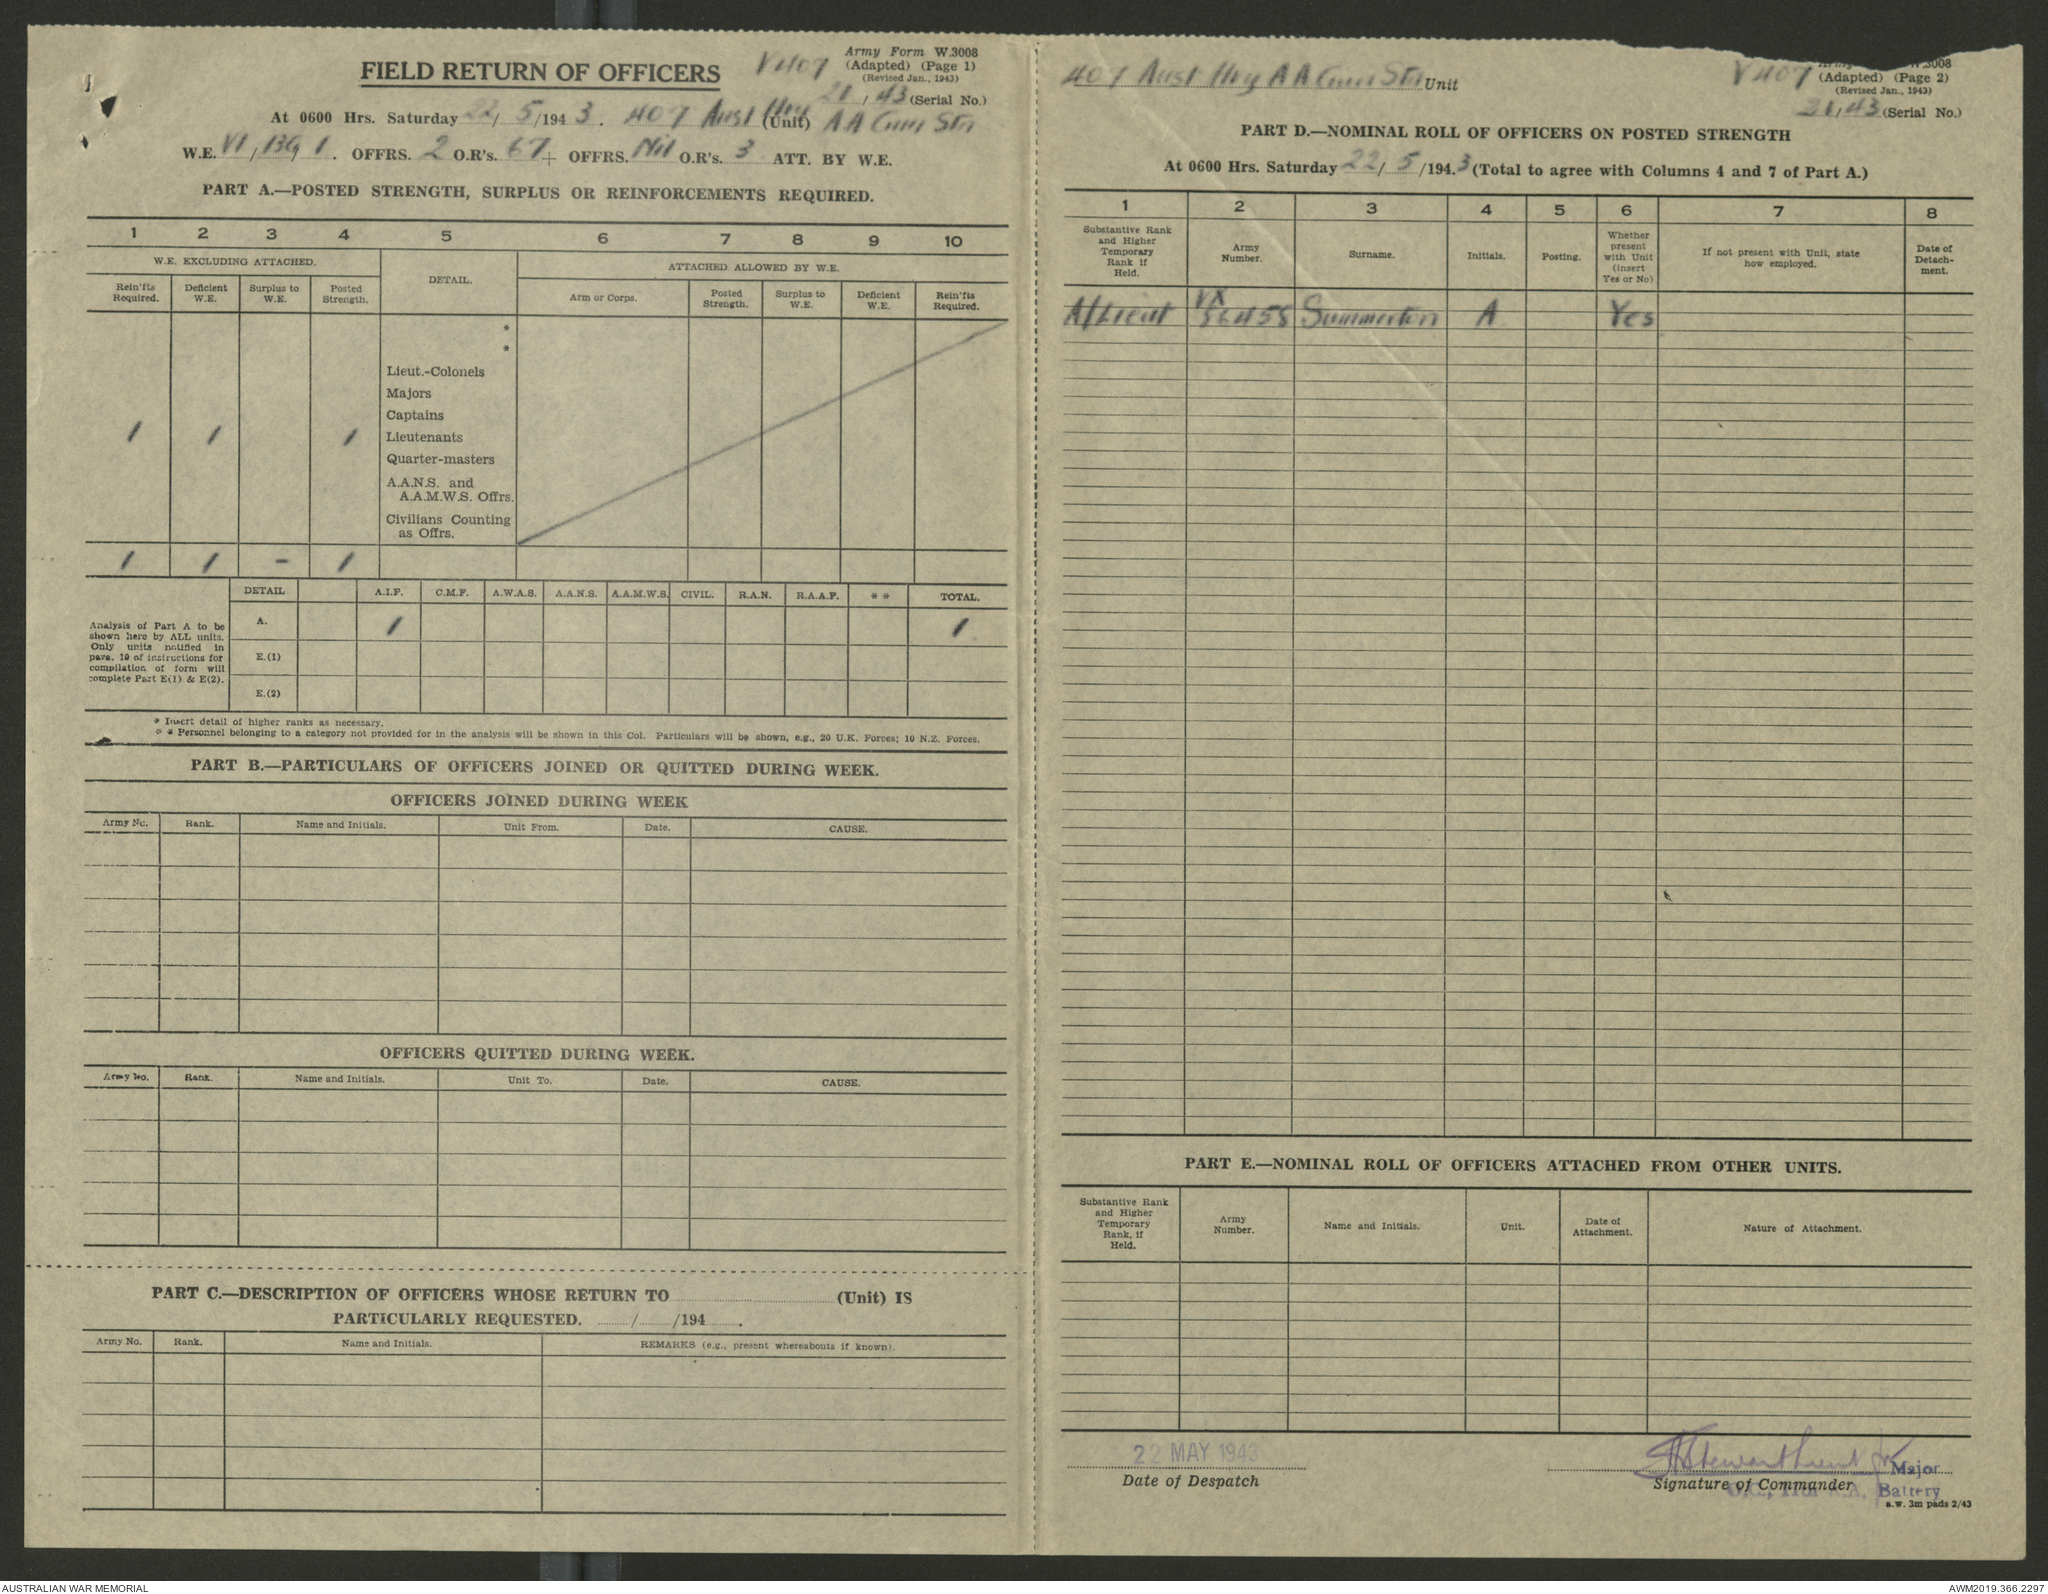 FIELD RETURN OF OFFICERS
V407
Army Form W.3008
(Adapted) (Page 1)
(Revised Jan., 1943)
21/43 (Serial No.)
At 0600 Hrs. Saturday 22/5/1943. 407 Aust Hvy (Unit) A A Gun Stn
W.E. VI/13G/1. OFFRS. 2 O.R's. 67+ OFFRS. Nil O.R's. 3 ATT. BY W.E.
PART A.—POSTED STRENGTH, SURPLUS OR REINFORCEMENTS REQUIRED.
1 2 3 4 5 6 7 8 9 10
W.E. EXCLUDING ATTACHED.
DETAIL.
ATTACHED ALLOWED BY W.E.
Rein'fts Required.
Deficient W.E.
Surplus to W.E.
Posted Strength.
Arm or Corps.
Posted Strength.
Surplus to W.E.
Deficient W.E.
Rein'fts Required.
*
*
Lieut.-Colonels
Majors
Captains
1 1 1 Lieutenants
Quarter-masters
A.A.N.S. and
A.A.M.W.S. Offrs.
Civilians Counting
as Offrs.
1 1 - 1
DETAIL A.I.F. C.M.F. A.W.A.S. A.A.N.S. A.A.M.W.S. CIVIL. R.A.N. R.A.A.F. * * TOTAL.
Analysis of Part A to be
shown here by ALL units.
Only units notified in
para. 10 of instructions for
compilation of form will
complete Part E(1) & E(2).
A. 1 1
E.(1)
E.(2)
* Insert detail of higher ranks as necessary.
* * Personnel belonging to a category not provided for in the analysis will be shown in this Col. Particulars will be shown, e.g., 20 U.K. Forces; 10 N.Z. Forces.
PART B.—PARTICULARS OF OFFICERS JOINED OR QUITTED DURING WEEK.
OFFICERS JOINED DURING WEEK
Army No. Rank. Name and Initials. Unit From. Date. CAUSE.
OFFICERS QUITTED DURING WEEK.
Army No. Rank. Name and Initials. Unit To. Date. CAUSE.
PART C.—DESCRIPTION OF OFFICERS WHOSE RETURN TO (Unit) IS
PARTICULARLY REQUESTED. / /194 .
Army No. Rank. Name and Initials. REMARKS (e.g., present whereabouts if known).
407 Aust Hvy A A Gun Stn Unit
V407
W.3008
(Adapted) (Page 2)
(Revised Jan., 1943)
21/43 (Serial No.)
PART D.—NOMINAL ROLL OF OFFICERS ON POSTED STRENGTH
At 0600 Hrs. Saturday 22/5/1943 (Total to agree with Columns 4 and 7 of Part A.)
1 2 3 4 5 6 7 8
Substantive Rank and Higher Temporary Rank if Held.
Army Number.
Surname.
Initials.
Posting.
Whether present with Unit (insert Yes or No)
If not present with Unit, state how employed.
Date of Detach-ment.
A/Lieut VX 56458 Summerton A Yes
PART E.—NOMINAL ROLL OF OFFICERS ATTACHED FROM OTHER UNITS.
Substantive Rank and Higher Temporary Rank, if Held.
Army Number.
Name and Initials.
Unit.
Date of Attachment.
Nature of Attachment.
22 MAY 1943
Date of Despatch
Stewart Lieut for Major
Signature of Commander
Battery
a.w. 3m pads 2/43
AUSTRALIAN WAR MEMORIAL
AWM2019.366.2297